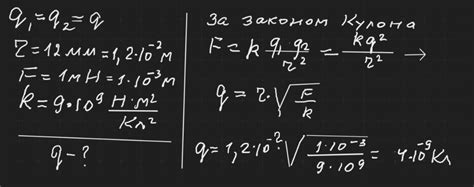 q₁=q₂=q
r=12мм=1,2·10⁻²м
F=1мН=1·10⁻³м
k=9·10⁹ Н·м²/Кл²
q-?
За законом Кулона
F=k q₁q₂/r²=kq²/r² →
q=r·√(F/k)
q=1,2·10⁻²·√(1·10⁻³/9·10⁹)= 4·10⁻⁹Кл